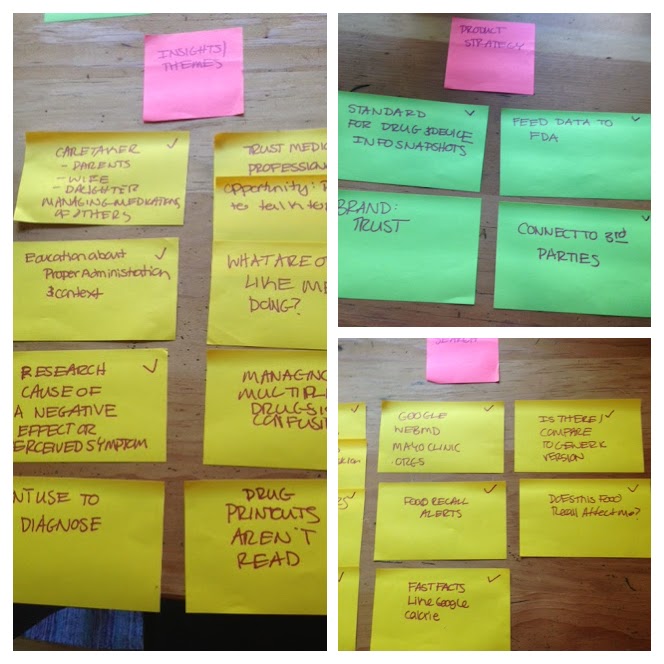 INSIGHTS/
THEMES
CARETAKER ✓
- PARENTS
- WIFE
- DAUGHTER
MANAGING MEDICATIONS
OF OTHERS
TRUST MEDIC
PROFESSION
opportunity:
to talk to
Education about ✓
Proper Administration
& context
WHAT ARE O
LIKE ME
DOING?
RESEARCH ✓
CAUSE OF
A NEGATIVE
EFFECT OR
PERCEIVED SYMPTOM
MANAGING
MULTIPL
DRUGS IS
CONFUSI
NT USE TO
DIAGNOSE
DRUG
PRINTOUTS
AREN'T
READ
PRODUCT
STRATEGY
STANDARD ✓
FOR DRUG & DEVICE
INFO SNAPSHOTS
FEED DATA TO ✓
FDA
BRAND:
TRUST
CONNECT TO 3RD ✓
PARTIES
SEARCH
GOOGLE ✓
WEBMD
MAYO CLINIC
.ORGS
IS THERE/ ✓
COMPARE
TO GENERIC
VERSION
FOOD RECALL ✓
ALERTS
DOES THIS FOOD ✓
Recall Affect me?
FAST FACTS ✓
Like Google
calorie